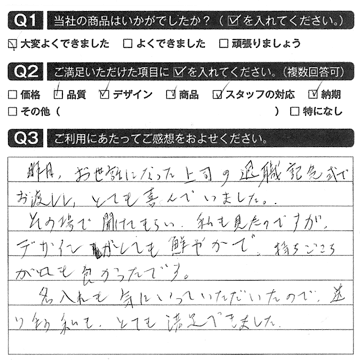 Q1 当社の商品はいかがでしたか？（☑を入れてください。）
☑大変よくできました □よくできました □頑張りましょう
Q2 ご満足いただけた項目に☑を入れてください。（複数回答可）
□価格 ☑品質 ☑デザイン ☑商品 ☑スタッフの対応 ☑納期
□その他（ ）□特になし
Q3 ご利用にあたってご感想をおよせください。
昨日、お世話になった上司の退職記念式で
お渡しし、とても喜んでいました。
その場で開けてもらい、私も見たのですが、
デザインがとても鮮やかで、持ちごこち
がとても良かったです。
名入れも気にいっていただいたので、送
り主の私も、とても満足できました。